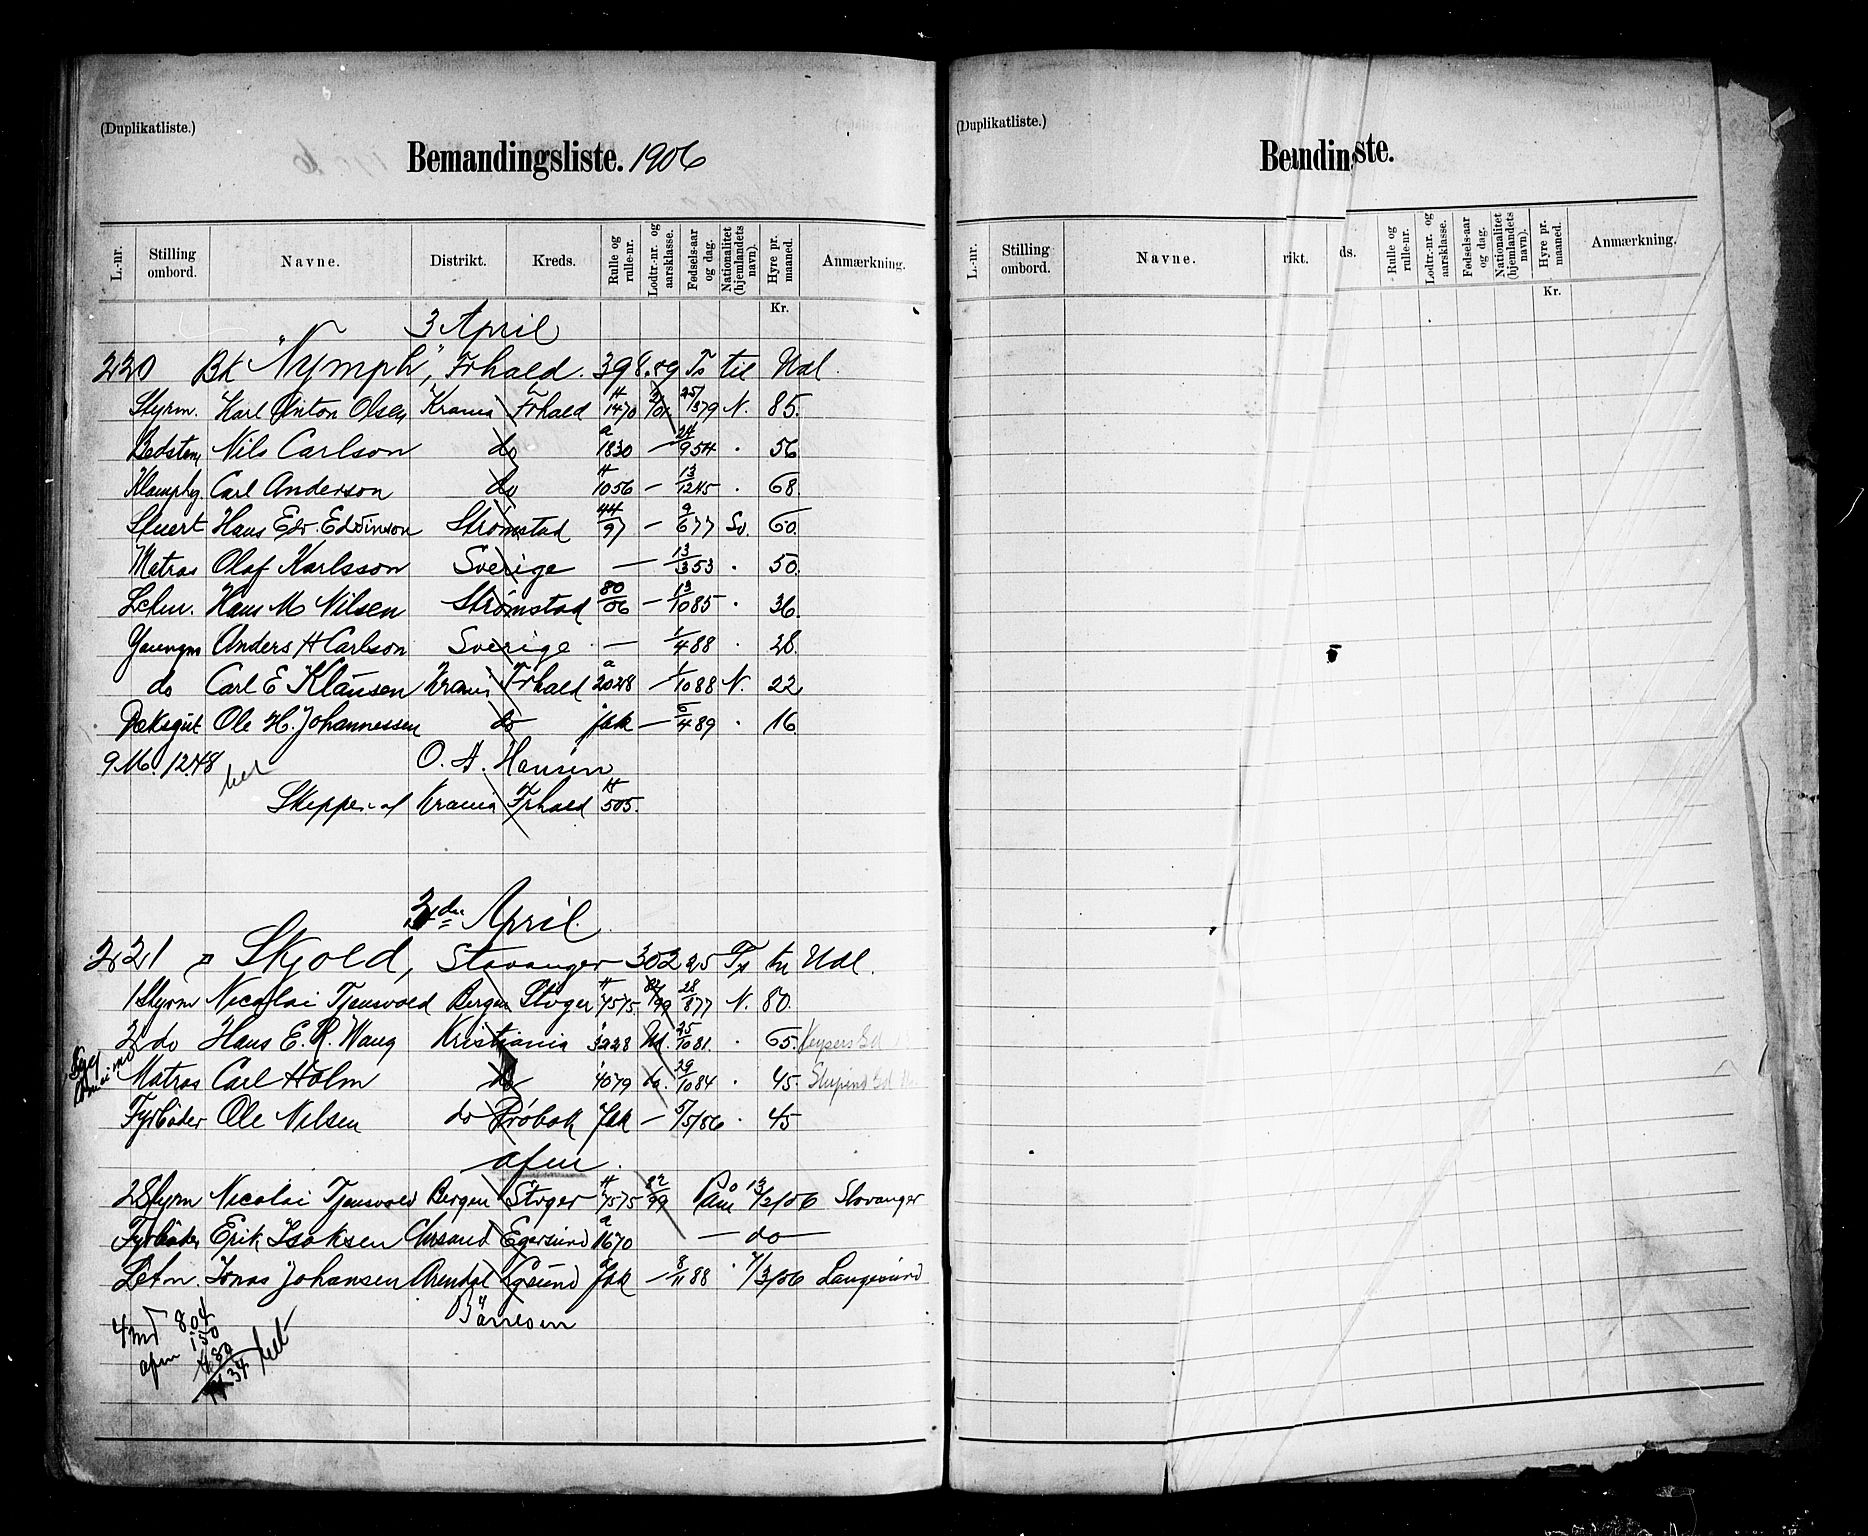 (Duplikatliste.)
Bemandingsliste. 1906
L.-nr. Stilling ombord. Navne. Distrikt. Kreds. Rulle og rulle-nr. Lodtr.-nr. og aarsklasse. Fødsels-aar og dag. Nationalitet (hjemlandets navn). Hyre pr. maaned. Anmærkning.
Kr.
3 April
220 Bk "Nymph", Frhald. 398.89 Ts til Udl.
Styrm. Karl Anton Olsen Krania Frhald H 1470 25/3 79 N. 85.
Bedstem Nils Carlson do a 1830 — 24/9 54 . 56
Carl Anderson do H 1056 — 13/12 45 . 68.
Stuert Hans Edv. Edvinson Strømstad 44/97 — 9/6 77 Sv. 60.
Matros Olaf Karlsson Sverige — 13/3 53 . 50.
Letm. Hans M Nilsen Strømstad 80/06 — 13/10 85 . 36.
Youngm Anders H Carlson Sverige — 1/4 88 . 28.
do Carl E Klausen Krania Frhald a 2028 — 1/10 88 N. 22
Dæksgut Ole H. Johannessen do fsk — 6/4 89 . 16
9 M. 12.48 O. A. Hansen
Skipper af Krania Frhald H 505.
3die April.
221 D Skjold, Stavanger 302 25 Ts til Udl.
1 Styrm Nicolai Tjensvold Bergen Stvger H 7575 82/99 28/8 77 N. 80.
2 do Hans E. R. Waug Kristiania 3228 Ud. 25/10 81. . 65.
Matros Carl Holm do 4079 do. 29/10 84 . 45.
Fyrbøder Ole Nilsen do Drøbak fsk — 5/5/86 . 45
afm.
2 Styrm Nicolai Tjensvold Bergen Stvger H 7575 82/99 Paam 13/2/06 Stavanger
Fyrbøder Erik Isaksen Chrsand Egersund a 1670 — do —
Letm. Jonas Johansen Arendal fsk — 8/11 88 . 7/3/06 Langesund
4 md 8.04
afm 1.50
4.80
14.34
(Duplikatliste.)
Bemndinste.
L.-nr. Stilling ombord. Navne. rikt. ds. Rulle og rulle-nr. Lodtr.-nr. og aarsklasse. Fødsels-aar og dag. Nationalitet (hjemlandets navn). Hyre pr. maaned. Anmærkning.
Kr.